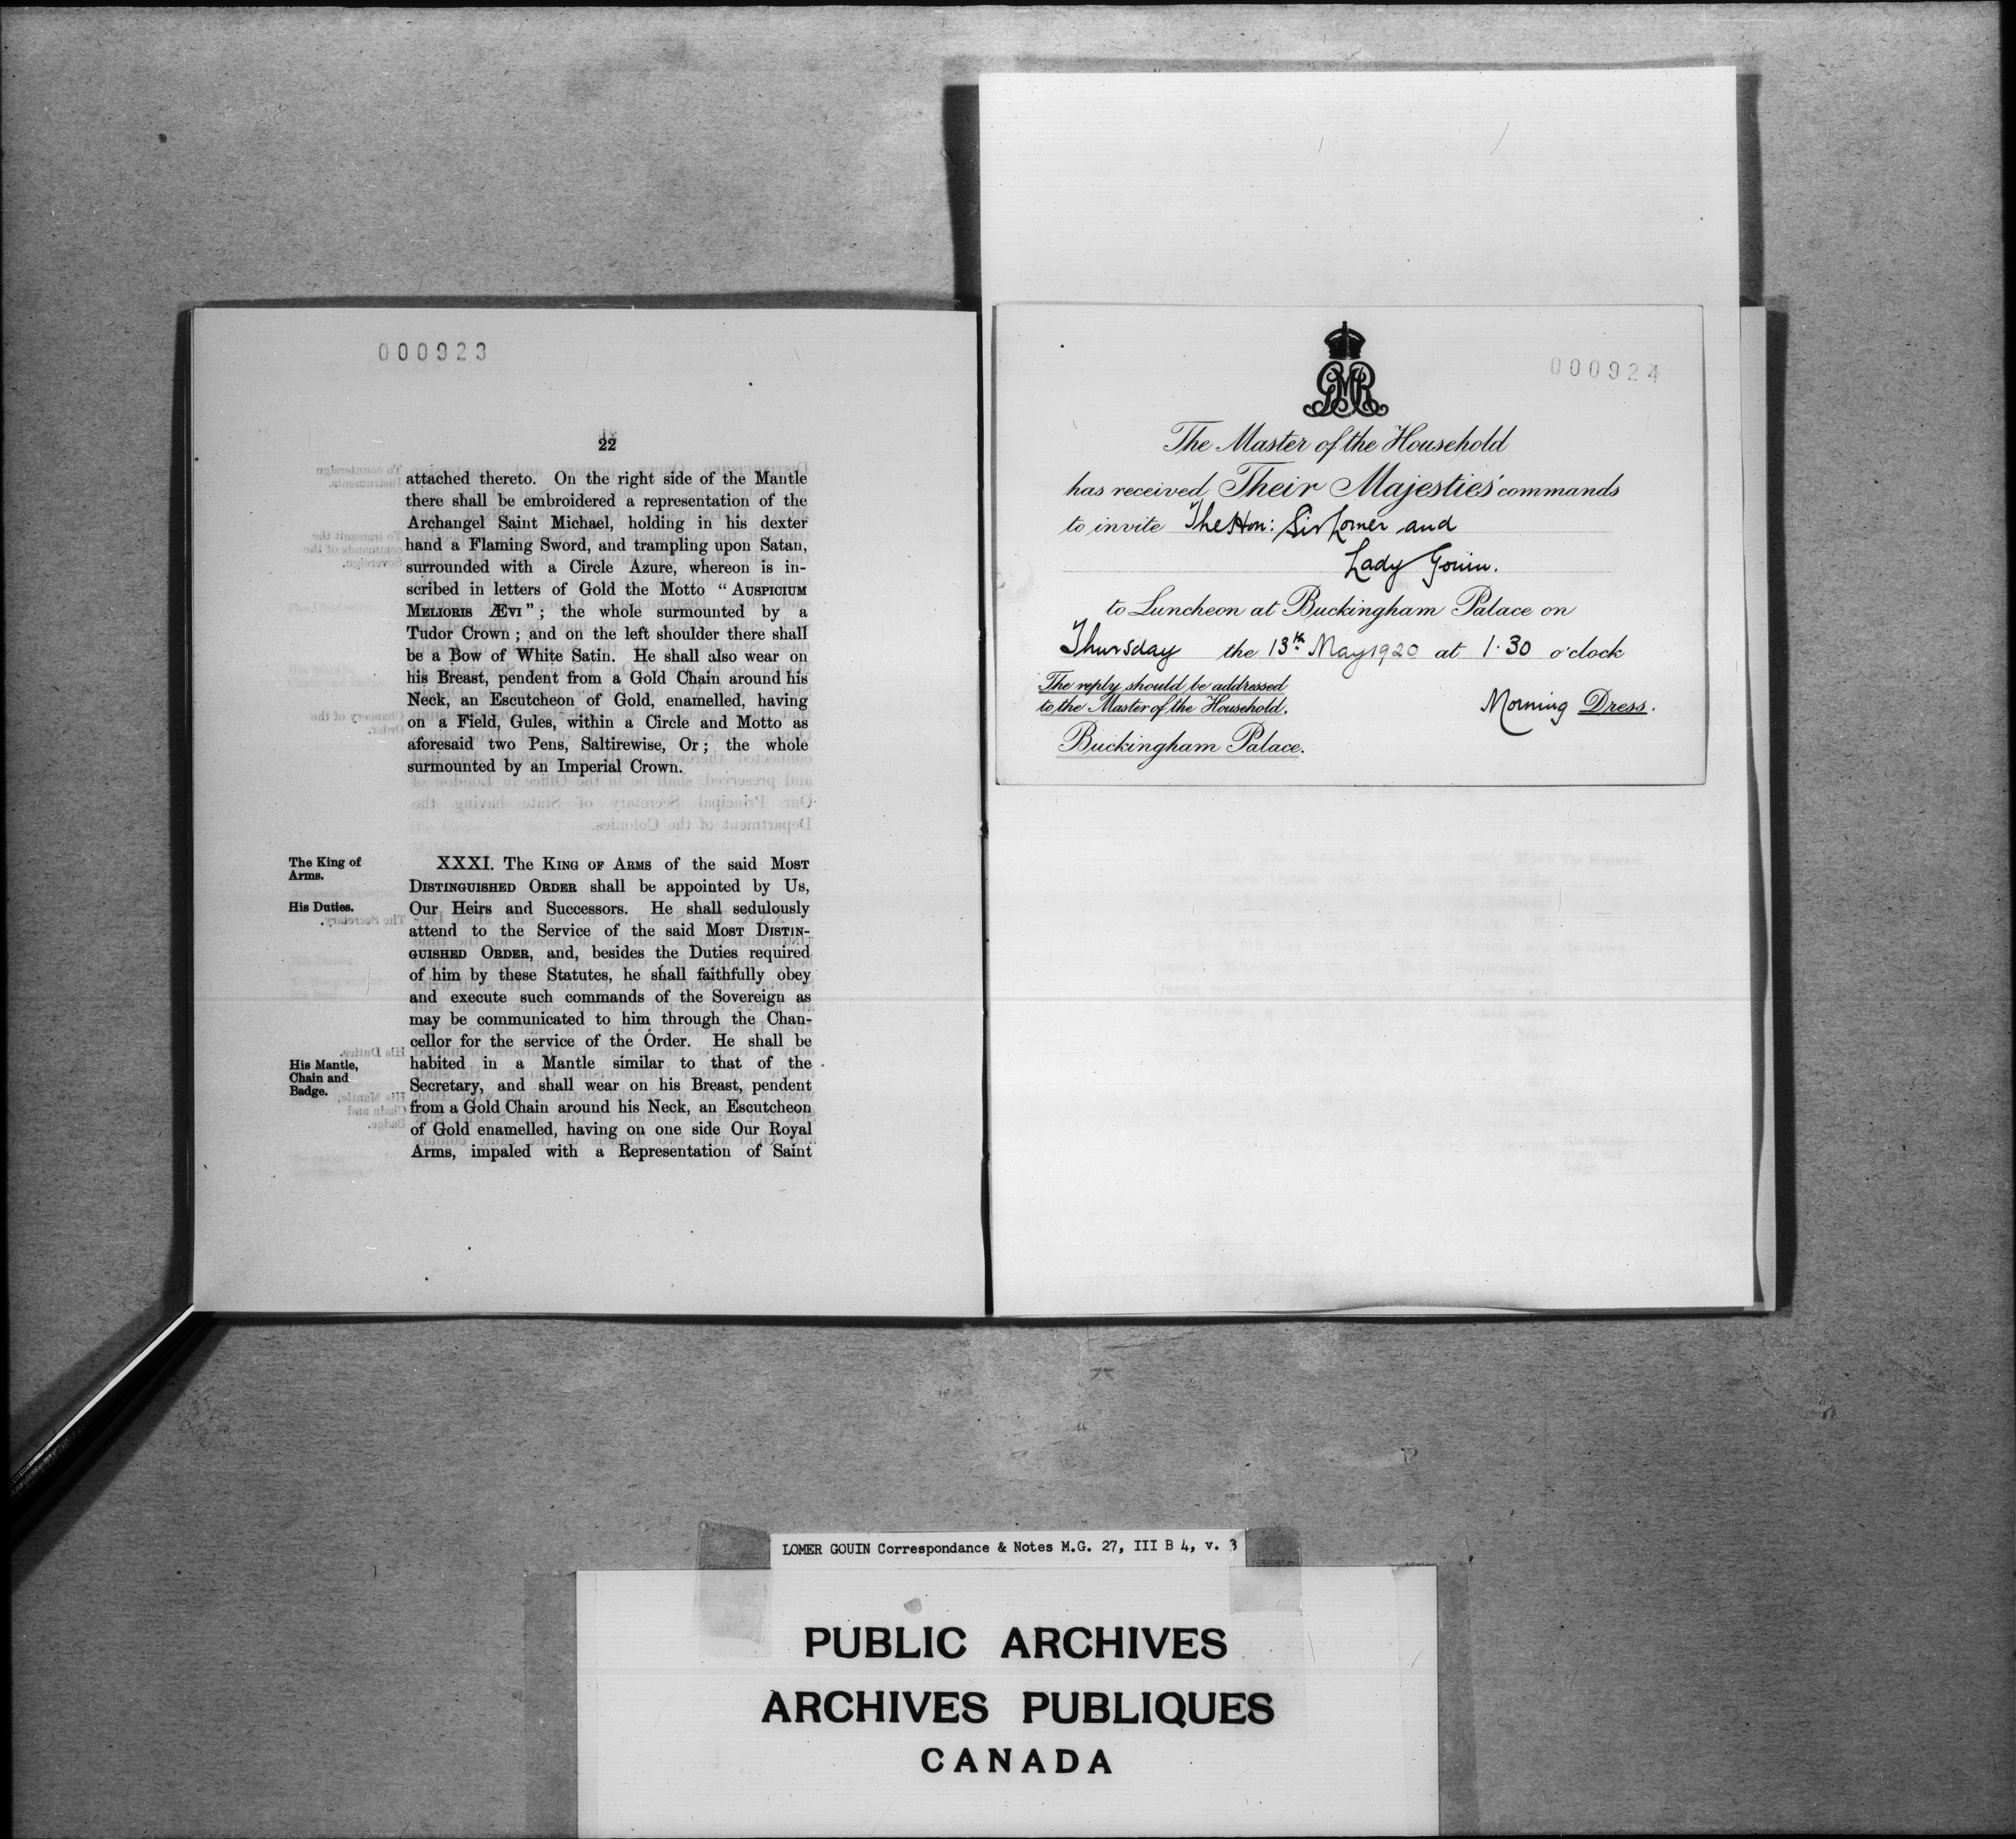 000923
22
attached thereto. On the right side of the Mantle
there shall be embroidered a representation of the
Archangel Saint Michael, holding in his dexter
hand a Flaming Sword, and trampling upon Satan,
surrounded with a Circle Azure, whereon is in-
scribed in letters of Gold the Motto “ AUSPICIUM
MELIORIS ÆVI ” ; the whole surmounted by a
Tudor Crown ; and on the left shoulder there shall
be a Bow of White Satin. He shall also wear on
his Breast, pendent from a Gold Chain around his
Neck, an Escutcheon of Gold, enamelled, having
on a Field, Gules, within a Circle and Motto as
aforesaid two Pens, Saltirewise, Or ; the whole
surmounted by an Imperial Crown.
The King of
Arms.
His Duties.
XXXI. The KING OF ARMS of the said MOST
DISTINGUISHED ORDER shall be appointed by Us,
Our Heirs and Successors. He shall sedulously
attend to the Service of the said MOST DISTIN-
GUISHED ORDER, and, besides the Duties required
of him by these Statutes, he shall faithfully obey
and execute such commands of the Sovereign as
may be communicated to him through the Chan-
cellor for the service of the Order. He shall be
His Mantle,
Chain and
Badge.
habited in a Mantle similar to that of the
Secretary, and shall wear on his Breast, pendent
from a Gold Chain around his Neck, an Escutcheon
of Gold enamelled, having on one side Our Royal
Arms, impaled with a Representation of Saint
000924
GMR
The Master of the Household
has received Their Majesties' commands
to invite The Hon: Sir Lomer and
Lady Gouin.
to Luncheon at Buckingham Palace on
Thursday the 13th May 1920 at 1.30 o'clock
The reply should be addressed
to the Master of the Household,
Buckingham Palace.
Morning Dress.
LOMER GOUIN Correspondance & Notes M.G. 27, III B 4, v. 3
PUBLIC ARCHIVES
ARCHIVES PUBLIQUES
CANADA